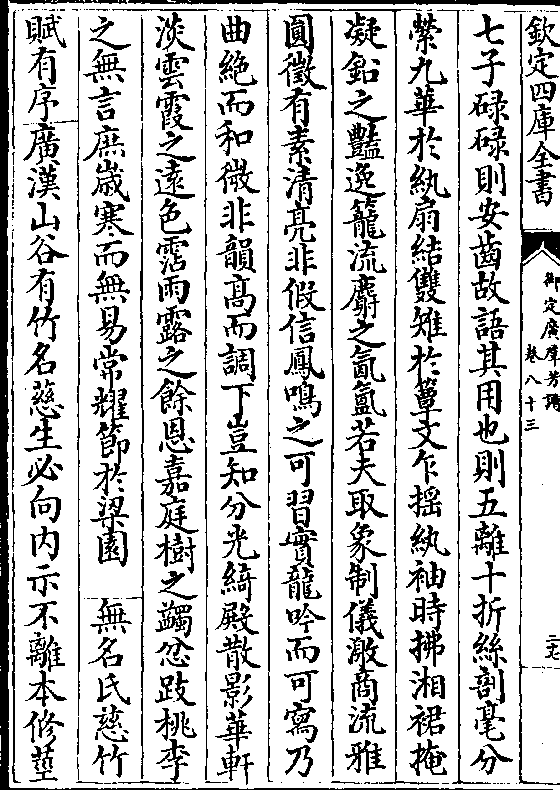 欽定四庫全書
御定廣羣芳譜
卷八十三
三七
七子碌碌則安齒故語其用也則五離十折絲剖毫分
縈九華於紈扇結雙雉於蕈文乍揺紈袖時拂湘裙掩
凝鉛之豔逸籠流麝之氤氲若夫取象制儀激商流雅
圓徵有素清亮非假信鳳鳴之可習實龍吟而可寫乃
曲絶而和微非韻髙而調下豈知分光綺殿散影華軒
淡雲霞之逺色霑雨露之餘恩嘉庭樹之蠲忿跂桃李
之無言庶嵗寒而無易常耀節於梁園　無名氏慈竹
賦有序廣漢山谷有竹名慈生必向内示不離本修莖